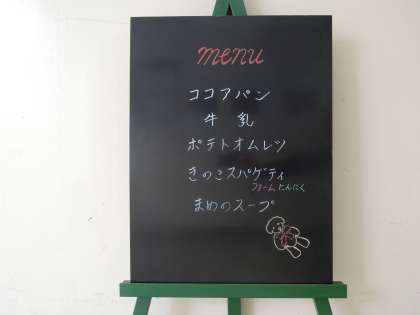 menu
ココアパン
牛乳
ポテトオムレツ
きのこスパゲティ
ファームにんにく
まめのスープ